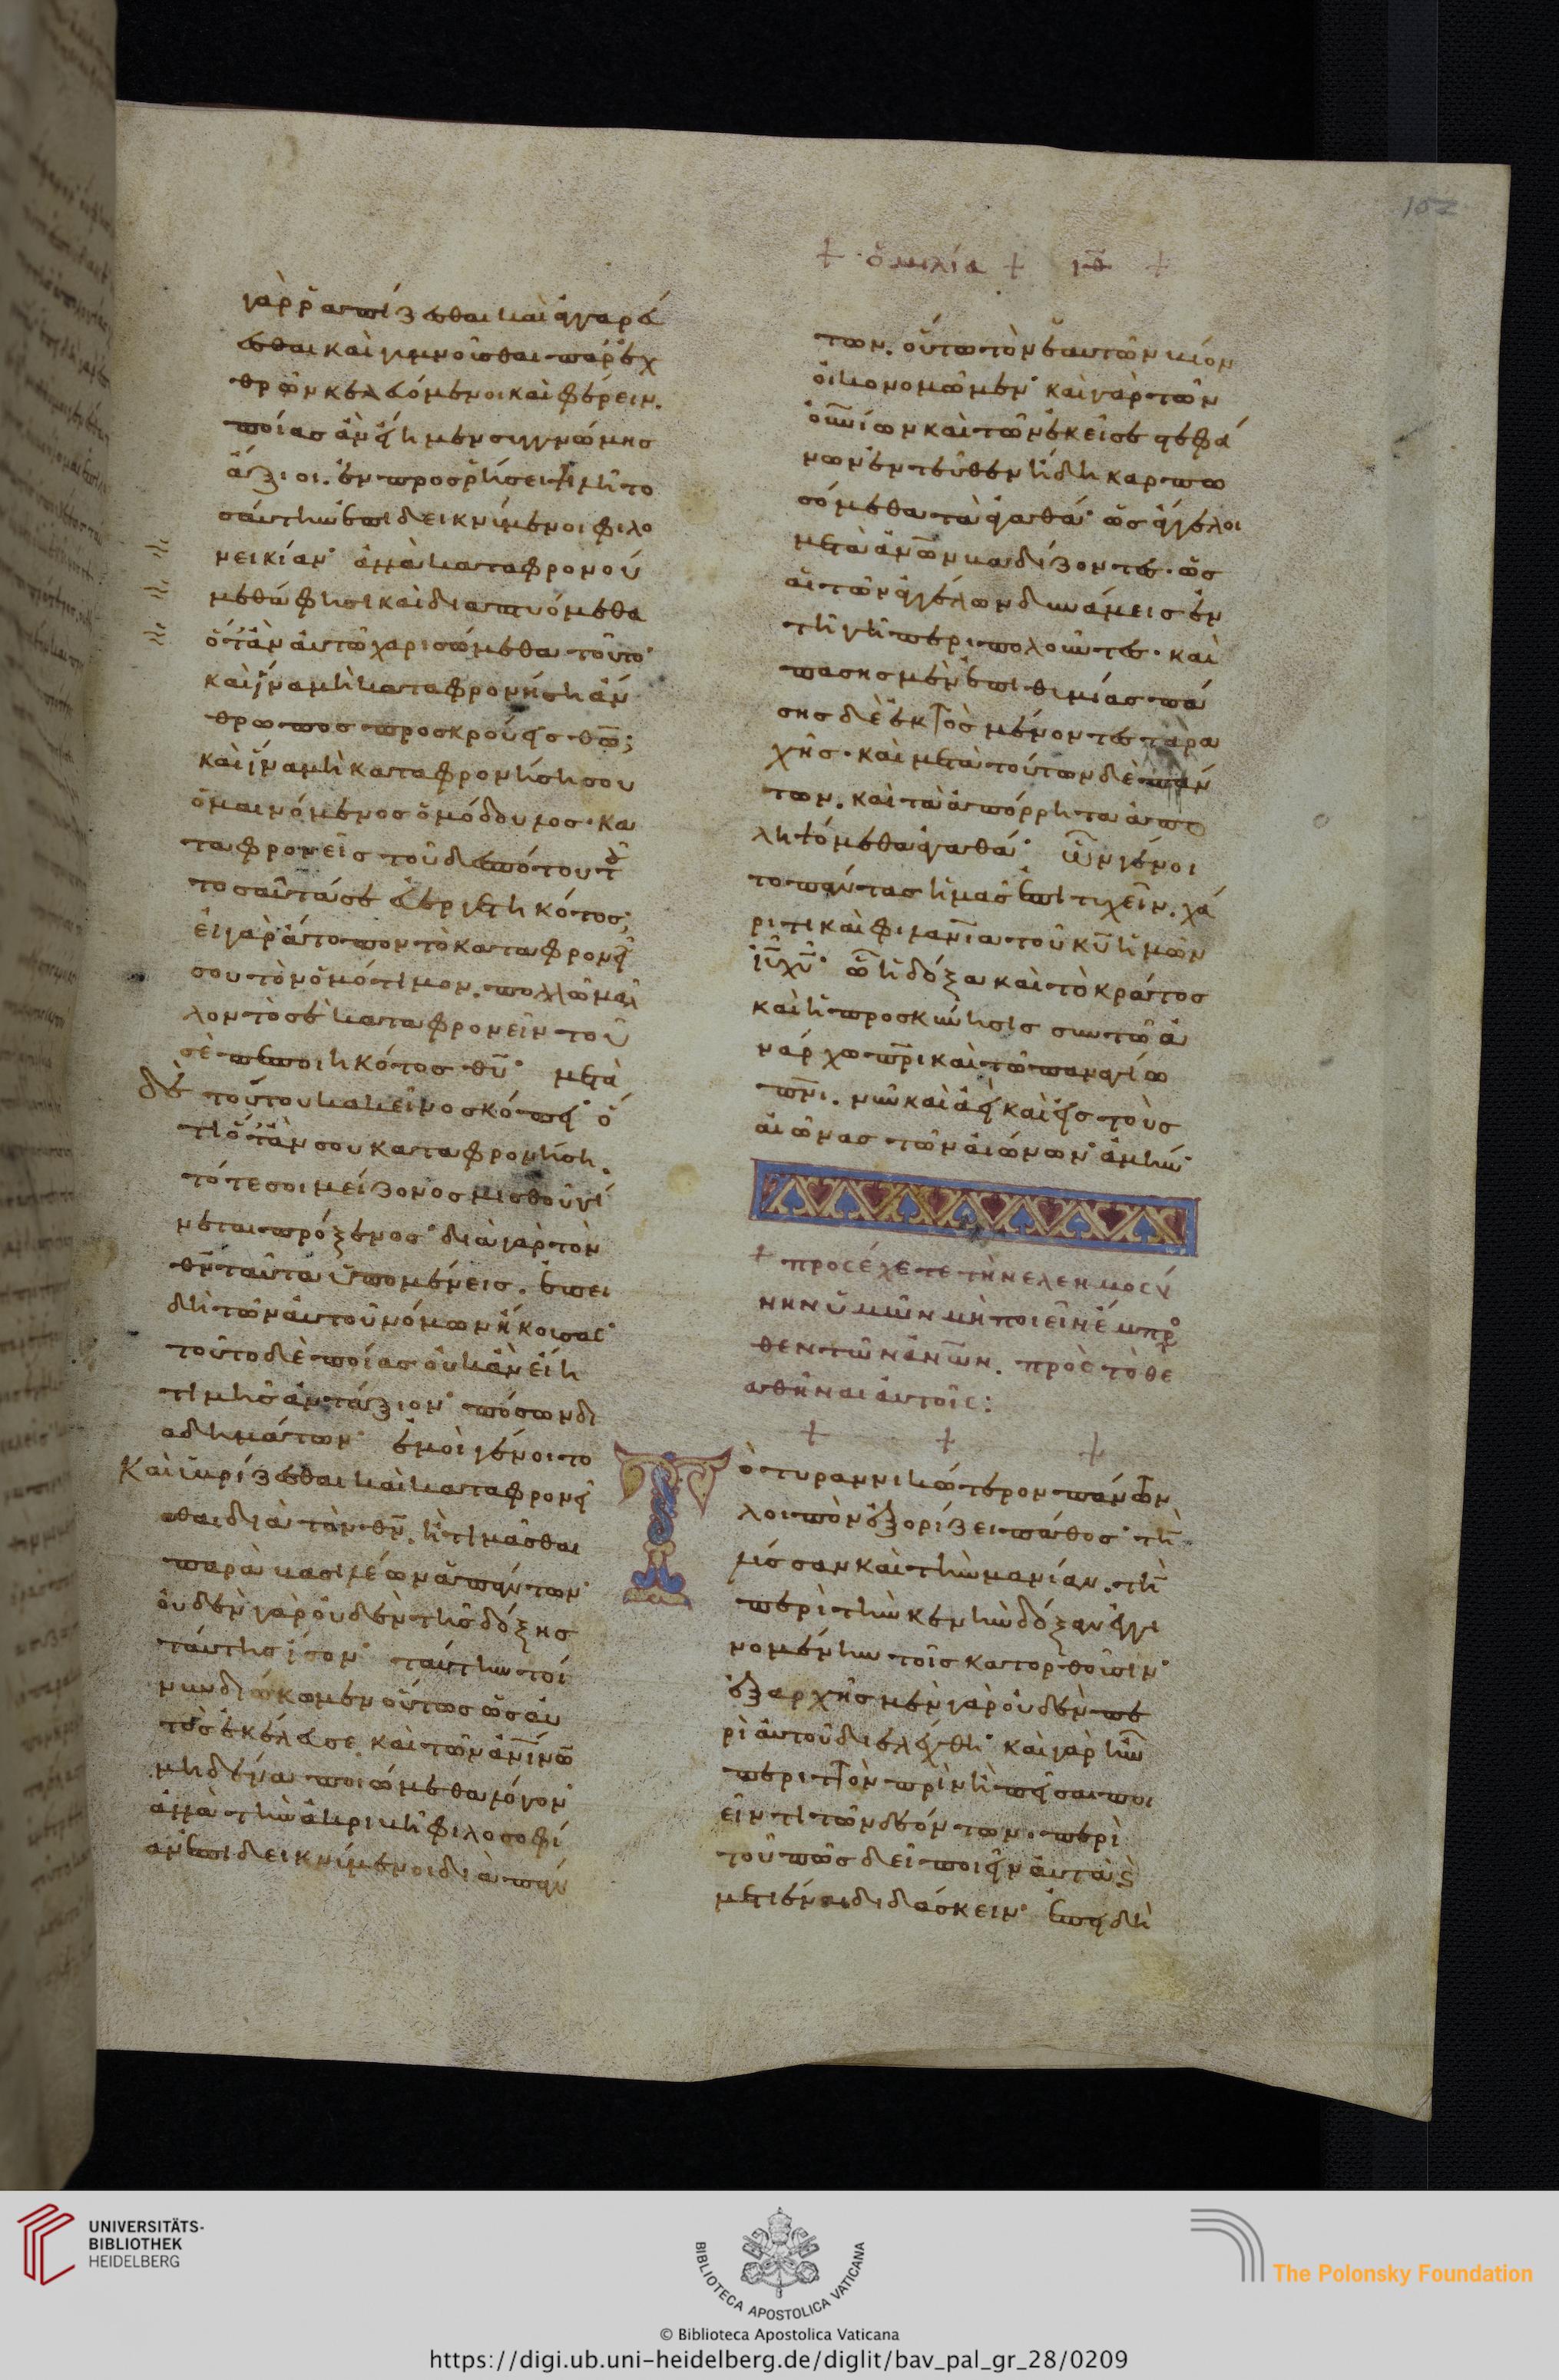 + ὁμιλία + ιθ +
γὰρ ῥαπίζεσθαι καὶ ἀγγαρεύ
εσθαι καὶ γυμνοῦσθαι παρ' ἐχ
θρῶν κελευόμενοι καὶ φέρειν.
ποίας ἂν εἴημεν συγγνώμης
ἄξιοι. ἐν προσρήσει τιμῆ το
σαύτην ἐπιδεικνύμενοι φιλο
νεικίαν· ἀλλὰ καταφρονού
μεθά φησι καὶ διαπτυόμεθα
ὅτ' ἂν αὐτῶ χαρισώμεθα τοῦτο·
καὶ ἵνα μὴ καταφρονήση ἄν
θρωπος προσκρούεις θω̅;
καὶ ἵνα μὴ καταφρονήση σου
ὁ μαινόμενος ὁμόδουλος· κα
ταφρονεῖς τοῦ δεσπότου τοῦ
τοσαῦτά σε εὐεργετηκότος;
εἰ γὰρ ἄτοπον τὸ καταφρονεῖ
σου τὸν ὁμότιμον. πολλῶ μᾶλ
λον τὸ σὲ καταφρονεῖν τοῦ
σὲ πεποιηκότος θυ̅· μετὰ
δὲ τούτου κἀκεῖνο σκόπει· ὅ
τι ὅτ' ἄν σου καταφρονήση.
τότε σοι μείζονος μισθοῦ γί
νεται πρόξενος· διὰ γὰρ τὸν
θν̅ ταῦτα ὑπομένεις. ἐπει
δὴ τῶν αὐτοῦ νόμων ἤκουσας·
τοῦτο δὲ ποίας οὐκ ἂν εἴη
τιμῆς ἀντάξιον· πόσων δι
αδημάτων· ἐμοὶ γένοιτο
καὶ ὑβρίζεσθαι καὶ καταφρονεῖ
σθαι διὰ τὸν θν̅. ἢ τιμᾶσθαι
παρὰ βασιλέων ἁπάντων·
οὐδὲν γὰρ οὐδὲν τῆς δόξης
ταύτης ἴσον· ταύτην τοί
νυν διώκωμεν οὕτως ὡς αὐ
τὸς ἐκέλευσε. καὶ τῶν ἀνίνων
μηδένα ποιώμεθα λόγον·
ἀλλὰ τὴν ἀκριβῆ φιλοσοφί
αν ἐπιδεικνύμενοι διὰ πάν
των. οὕτω τὸν ἑαυτῶν βίον
οἰκονομῶμεν· καὶ γὰρ τῶν
οὐνίων καὶ τῶν ἐκεῖσε στεφά
νων ἐντεῦθεν ἤδη καρπω
σόμεθα τὰ ἀγαθά· ὡς ἄγγελοι
μετὰ ἀνω̅ν βαδίζοντες. ὡς
αἱ τῶν ἀγγέλων δυνάμεις ἐν
τῆ γῆ περιπολοῦντες. καὶ
πάσης μὲν ἐπιθυμίας πά
σης δὲ ἐκτὸς μένοντες ταρα
χῆς. καὶ μετὰ τούτων δὲ πάν
των. καὶ τὰ ἀπόρρητα ἀπο
ληψόμεθα ἀγαθά· ὧν γένοι
το πάντας ἡμᾶς ἐπιτυχεῖν. χά
ριτι καὶ φιλανι̅α τοῦ κυ̅ ἡμῶν
ιυ̅ χυ̅· ὧ ἡ δόξα καὶ τὸ κράτος
καὶ ἡ προσκύνησις συν τῶ ἀ
νάρχω πρι̅ καὶ τῶ παναγίω
πνι̅. νῦν καὶ ἀεὶ καὶ εἰς τοὺς
αἰῶνας τῶν αἰώνων ἀμήν·
+ προσέχετε τὴν ἐλεημοσύ
νην ὑμῶν μὴ ποιεῖν ἔμπρο
θεν τῶν ἀνω̅ν. πρὸς τὸ θε
αθῆναι αὐτοῖς:
+ + +
Τὸ τυραννικώτερον πάντων
λοιπὸν ἐξορίζει πάθος· τὴν
λύσσαν καὶ τὴν μανίαν. τὴν
περὶ τὴν κενὴν δόξαν ἐγγι
νομένην τοῖς κατορθοῦσιν·
ἐξαρχῆς μὲν γὰρ οὐδὲν πε
ρὶ αὐτοῦ διελέχθη· καὶ γὰρ ἦν
περιττὸν πρὶν ἢ πεῖσαι ποι
εῖν τι τῶν δεόντων. περὶ
τοῦ πῶς δεῖ ποιεῖν αὐτὰ ς
μετιέναι διδάσκειν· ἐπειδὴ
107
UNIVERSITÄTS-
BIBLIOTHEK
HEIDELBERG
BIBLIOTECA APOSTOLICA VATICANA
The Polonsky Foundation
© Biblioteca Apostolica Vaticana
https://digi.ub.uni-heidelberg.de/diglit/bav_pal_gr_28/0209